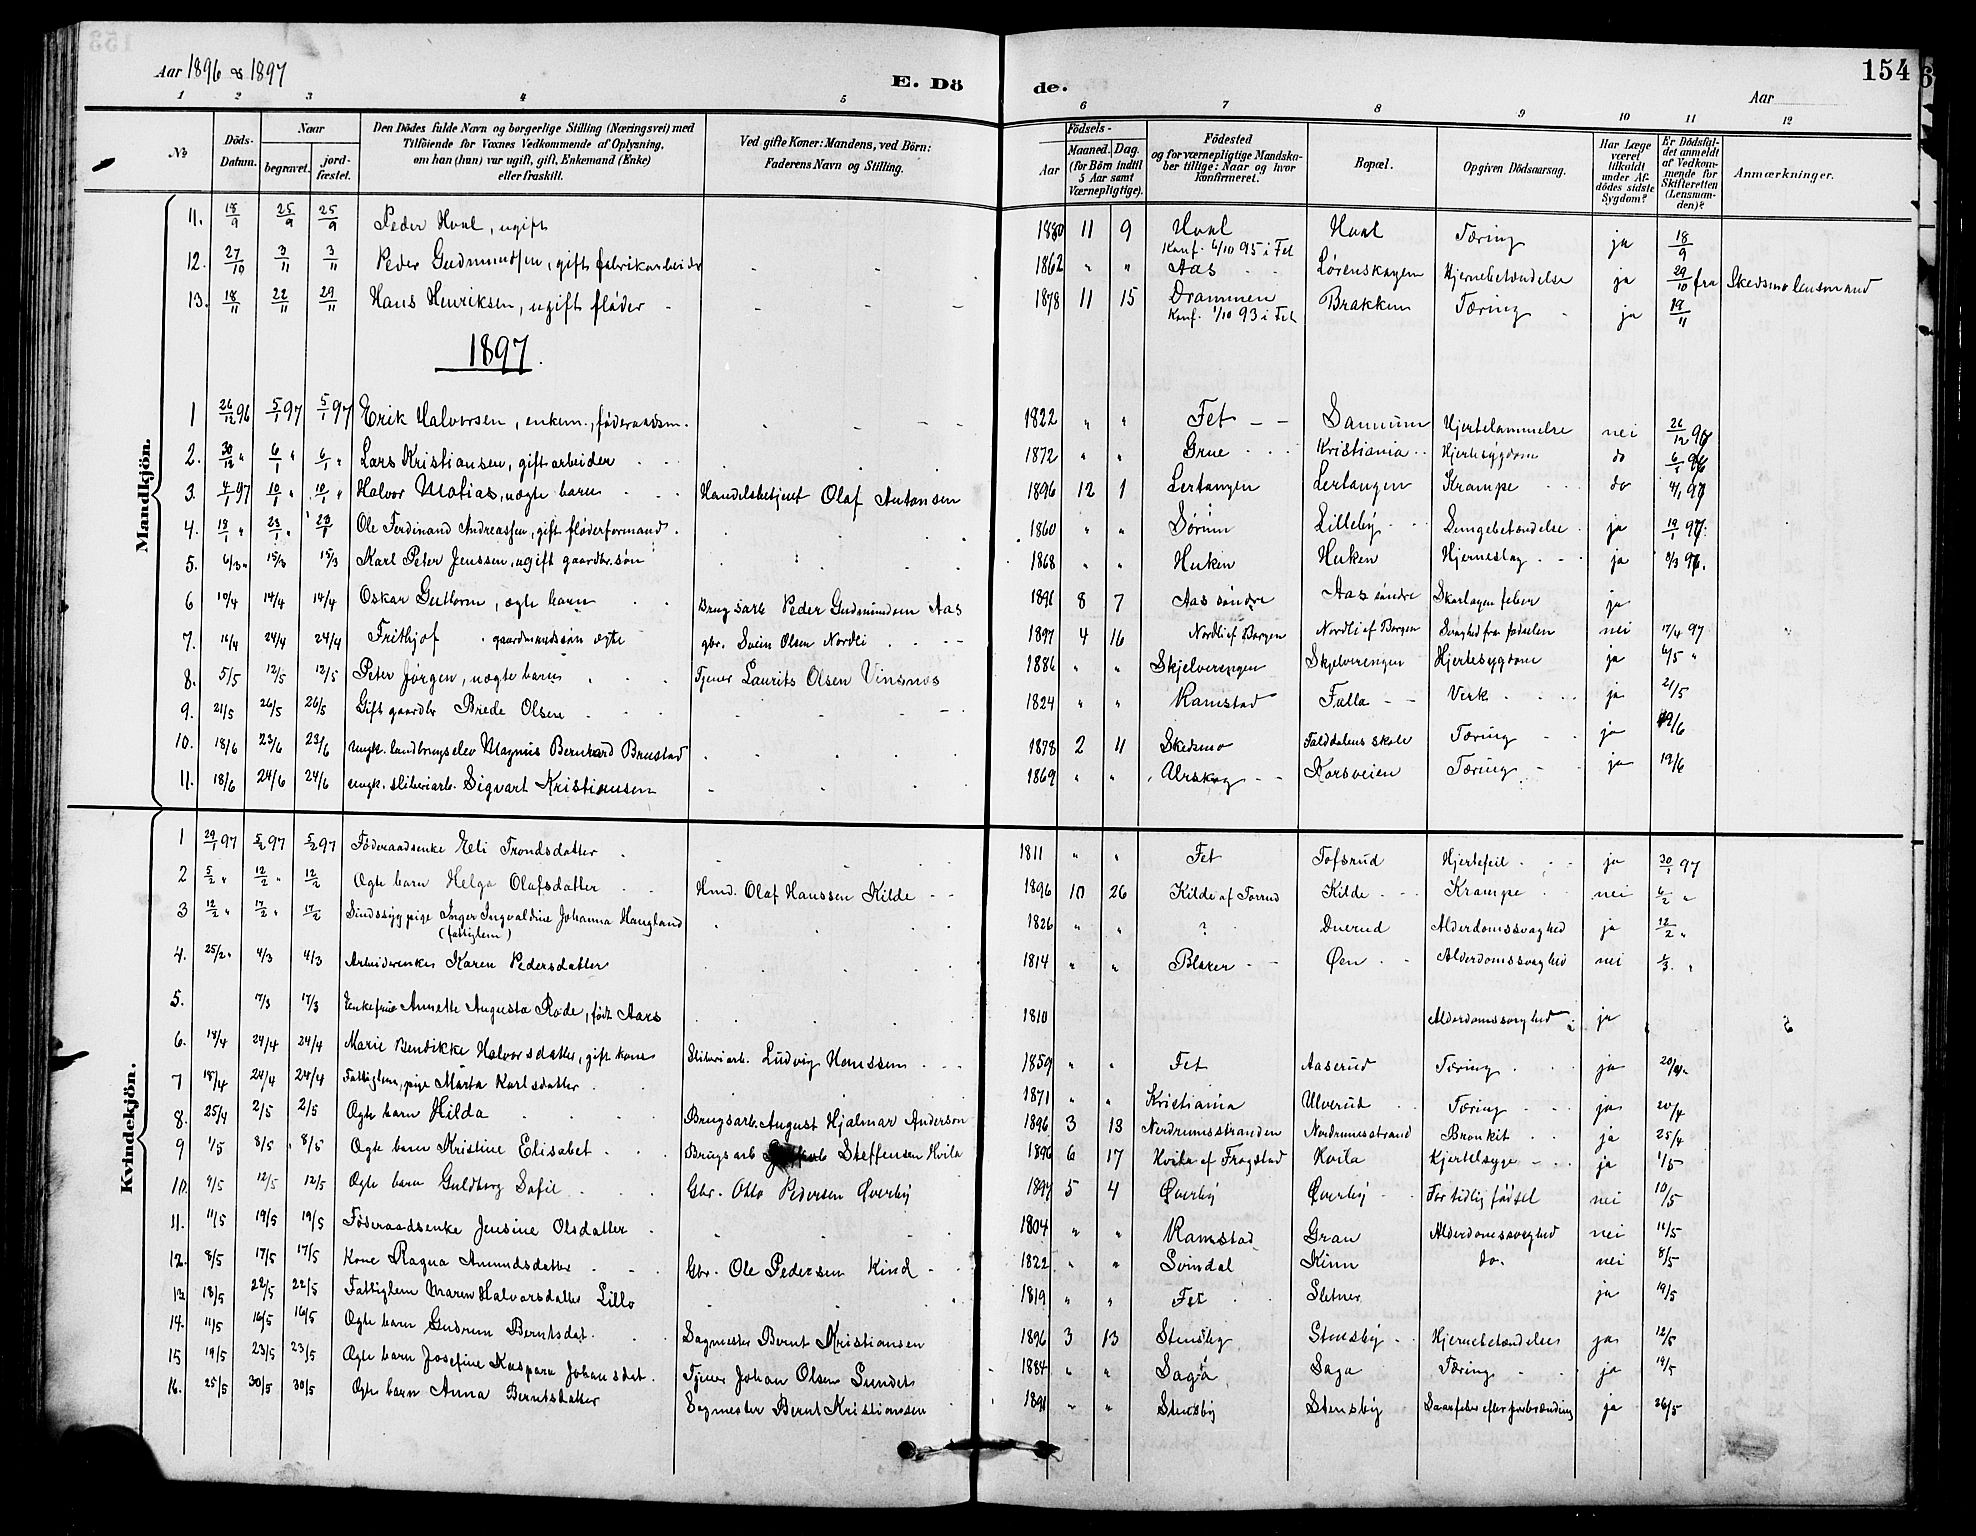 Aar 1896 & 1897
E. Dö de.
154
Aar
1 2 3 4 5 6 7 8 9 10 11 12
No
Döds-Datum.
Naar
begravet.
jord-fæstet.
Den Dödes fulde Navn og borgerlige Stilling (Næringsvei) med Tilföiende for Voxnes Vedkommende af Oplysning, om han (hun) var ugift, gift, Enkemand (Enke) eller fraskilt.
Ved gifte Koner: Mandens, ved Börn: Faderens Navn og Stilling.
Födsels-
Aar
Maaned. Dag.
(for Börn indtil 5 Aar samt Værnepligtige).
Födested og for værnepligtige Mandskaber tillige: Naar og hvor konfirmeret.
Bopæl.
Opgiven Dödsaarsag.
Har Læge været tilkaldt under Afdödes sidste Sygdom?
Er Dödsfaldet anmeldt af Vedkommende for Skifteretten (Lensmanden)?
Anmærkninger.
Mandkjön.
11. 18/9 25/9 25/9 Peder Hval, ugift 1880 11 9 Hval Konf. 6/10 95 i Fet Hval Tæring ja 18/9
12. 27/10 3/11 3/11 Peder Gudmundsen, gift fabrikarbeider 1862 " " Aas Lørenskogen Hjernebetændelse ja 29/10 fra Skedsmo lensmand
13. 18/11 22/11 29/11 Hans Henriksen, ugift fløder 1878 11 15 Drammen Konf. 1/10 93 i Fet Brakken Tæring ja 19/11
1897.
1 26/12 96 5/1 97 5/1 97 Erik Halvorsen, enkem., føderaadsm. 1822 " " Fet Sannum Hjertelammelse nei 26/12 96
2. 30/12 " 6/1 " 6/1 " Lars Kristiansen, gift arbeider 1872 " " Grue Kristiania Hjertesygdom do 6/1
3. 4/1 97 10/1 " 10/1 " Halvor Matias, uægte barn Handelsbetjent Olaf Antonsen 1896 12 1 Lertangen Lertangen Krampe do 4/1 97
4. 18/1 " 23/1 " 23/1 Ole Ferdinand Andreassen, gift fløderformand. 1860 " " Sørum Lilleby Lungebetændelse ja 19/1 97.
5. 6/3 " 15/3 15/3 Karl Peter Jenssen, ugift gaardbr. søn 1868 " " Huken Huken Hjerneslag ja
6 10/4 14/4 14/4 Oskar Guttorm, ægte barn Brugsarb Peder Gudmundsen Aas 1891 8 7 Aas søndre Aas søndre Skarlagensfeber ja
7. 16/4 24/4 24/4 Frithjof gaardmandssøn ægte gbr. Svein Olsen Nordli 1897 4 16 Nordli af Borgen Nordli af Borgen Svaghed fra fødselen nei 17/4 97
8. 5/5 12/5 12/5 Peter Jørgen, uægte barn Tjener Laurits Olsen Vinsnes 1886 " " Skjelverengen Skjelverengen Hjertesygdom ja 6/5 "
9. 21/5 26/5 26/5 Gift gaardbr Brede Olsen 1824 " " Ramstad Falla Verk ja 21/5
10. 18/6 23/6 23/6 Ungk. landbrugselev Magnus Bernhard Brustad 1878 2 11 Skedsmo Falddalens skole Tæring ja 19/6
11. 18/6 24/6 24/6 Ungk. sliberiarb. Sigvart Kristiansen 1869 " " Urskog Korsveien Tæring ja 19/6
Kvindekjön.
1 29/1 97 5/2 97 5/2 97 Föderaadsenke Eli Trondsdatter 1811 " " Fet Tofsrud Hjertefeil ja 30/1 97
2 5/2 " 12/2 " 12/2 Ægte barn Helga Olafsdatter Hmd. Olaf Hanssen Kilde 1896 10 26 Kilde af Torrud Kilde Krampe nei 6/2 "
3 12/2 " 17/2 " 17/2 Sindssyg pige Inger Ingvaldine Johanna Haugland (fattiglem) 1826 " " ? Duerud Alderdomssvaghed ja 12/2 "
4. 25/2 " 4/3 4/3 Arbeiderenke Karen Pedersdatter 1814 " " Blaker Øen Alderdomssvaghed nei "
5. 17/3 17/3 Enkefrue Annette Augusta Rode, født Aars 1810 Alderdomssvaghed ja
6. 18/4 24/4 24/4 Marie Bendikke Halvorsdatter, gift kone Sliberiarb. Ludvig Hanssen 1859 " " Fet Aaserud Tæring ja 20/4
7 18/4 24/4 24/4 Fattiglem, pige Marta Karlsdatter 1871 " " Kristiania Ulverud Tæring ja 20/4
8. 25/4 2/5 2/5 Ægte barn Hilda Brugsarb. August Hjalmar Anderson 1896 3 13 Nordrumsstranden Nordrumsstrand Bronkit ja 25/4
9 1/5 8/5 8/5 Ægte barn Kristine Elisabet Brugsarb Steffensen Hvila 1896 6 17 Hvila af Frogstad Hvila Kjertelsyge ja 1/5
10. 9/5 12/5 12/5 Ægte barn Guldborg Sofie Gbr. Otto Pedersen Øverby 1897 5 4 Øverby Øverby For tidlig fødsel nei 10/5
11. 11/5 19/5 19/5 Föderaadsenke Jensine Olsdatter 1804 " " Ramstad Gran Alderdomssvaghed nei 11/5
12. 8/5 17/5 17/5 Kone Ragna Amundsdatter Gbr. Ole Pedersen Kind 1822 " " Svindal Kinn do. nei 8/5
13 18/5 22/5 22/5 Fattiglem Maren Halvorsdatter Lillo 1819 " " Fet Sletner ja 19/5
14. 11/5 16/5 16/5 Ægte barn Gudrun Berntsdat. Sagmester Bernt Kristiansen 1896 3 13 Stensby Stensby Hjernebetændelse ja 12/5
15 19/5 23/5 23/5 Ægte barn Josefine Kaspara Johansdat. Tjener Johan Olsen Sundet 1884 " " Saga Saga Tæring ja 19/5
16. 25/5 30/5 30/5 Ægte barn Anna Berntsdatter Sagmester Bernt Kristiansen 1891 " " Stensby Stensby Saarfeber efter forbrænding ja 26/5